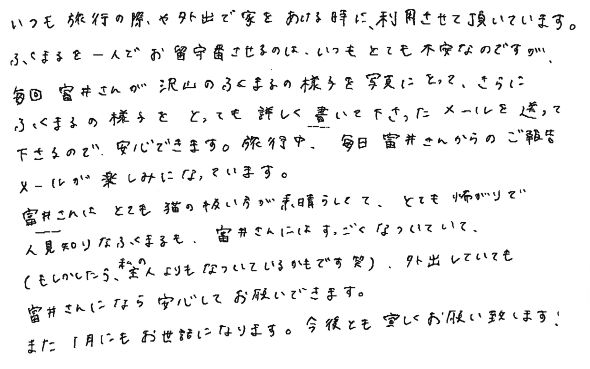 いつも旅行の際や外出で家をあける時に、利用させて頂いています。
ふくまるを一人でお留守番させるのは、いつもとても不安なのですが、
毎回 富井さんが沢山のふくまるの様子を写真にとって、さらに
ふくまるの様子をとっても詳しく書いて下さったメールを送って
下さるので、安心できます。旅行中、毎日富井さんからのご報告
メールが楽しみになっています。
富井さんはとても猫の扱い方が素晴らしくて、とても怖がりで
人見知りなふくまるも、富井さんにはすっごくなついていて、
(もしかしたら、私の主人よりもなついているかもです笑)、外出していても
富井さんになら安心してお願いできます。
また1月にもお世話になります。今後とも宜しくお願い致します!